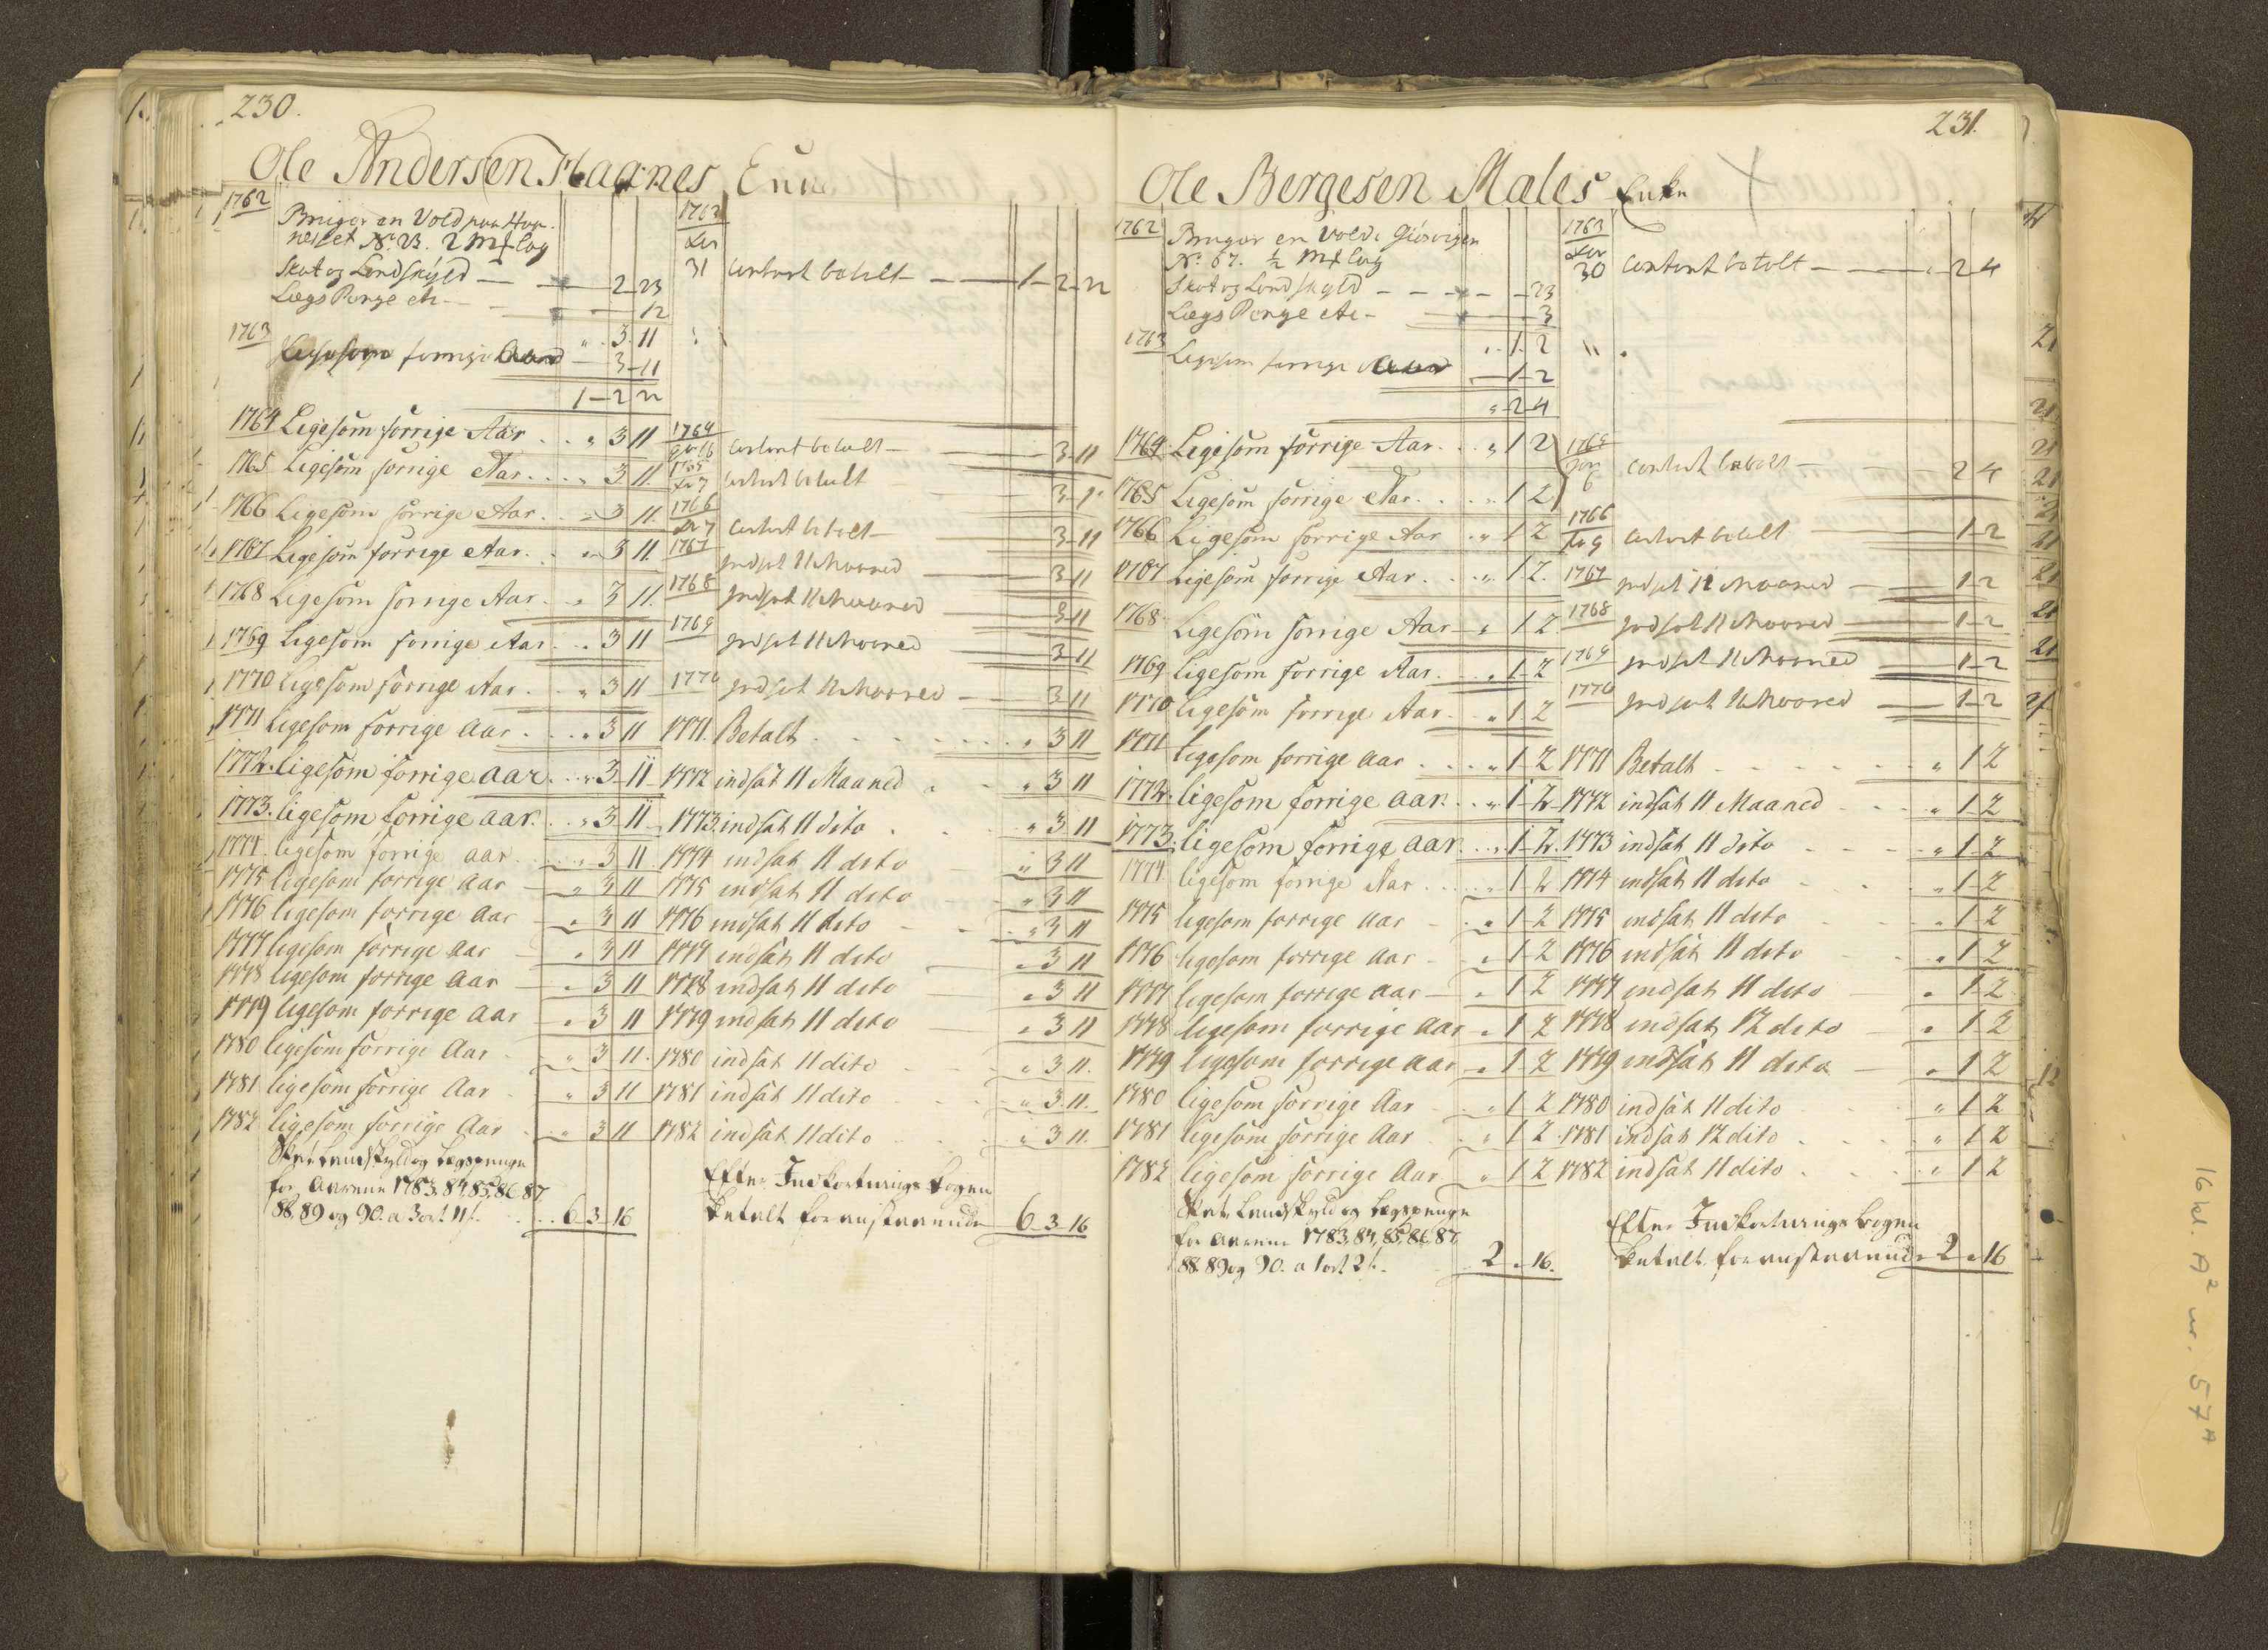 230.
Ole Andersen Haanes
1762
Bruger en Vold paa Haa-
neset No. 23. 2 Mk lag
Skat og Landskyld — 2-23
Lægs Penge etc — 12
" 3. 11
1763
Ligesom forrige Aar — 3-11
1-2-22
1764 Ligesom forrige Aar . . " 3 11
1765 Ligesom forrige Aar . . . " 3 11.
1766 Ligesom forrige Aar . " 3 11.
1767 Ligesom forrige Aar . " 3 11.
1768 Ligesom forrige Aar . " 3 11.
1769 Ligesom forrige Aar . " 3 11
1770 ligesom forrige Aar . " 3 11
1771 ligesom forrige Aar . . . " 3 11
1772. ligesom forrige aar. . . " 3-11
1773. ligesom forrige aar. . . " 3 11
1774 ligesom forrige aar . . " 3 11.
1775 ligesom forrige Aar — " 3 11
1776 ligesom forrige Aar — " 3 11
1777 ligesom forrige Aar — " 3 11
1778 ligesom forrige Aar — " 3 11
1779 ligesom forrige Aar — " 3 11
1780 ligesom forrige Aar . " 3 11.
1781 ligesom forrige Aar . " 3 11
1782 ligesom forrige Aar . " 3 11
Skat Landskyld og Lægspenge
for Aarene 1783, 84, 85, 86, 87
88, 89 og 90. a 3 ort 11 s. . . 6 3 16
1763
31 Contant betalt — 1-2-22
1764
16 Contant betalt — 3-11
1765
7 Contant betalt — 3-11
1766
7 Contant betalt — 3-11
1767 Indsat 11 Maaned — 3-11
1768 Indsat 11 Maaned — 3-11
1769 Indsat 11 Maaned — 3-11
1770 Indsat 11 Maaned — 3-11
1771. Betalt . . . . " 3 11
1772 indsat 11 Maaned . . " 3 11
1773. indsat 11 dito . . . " 3 11
1774 indsat 11 dito — " 3 11
1775 indsat 11 dito . " 3 11
1776 indsat 11 dito - - " 3 11
1777 indsat 11 dito — " 3 11
1778 indsat 11 dito — " 3 11
1779 indsat 11 dito — " 3 11
1780 indsat 11 dito . . . " 3 11.
1781 indsat 11 dito . . . " 3. 11.
1782 indsat 11 dito . . . " 3 11.
Efter Indkortnings bogen
betalt foranstaaende 6 3 16
231.
Ole Bergesen Mæles Enke
1762
Bruger en Vold i Giøsvigen
No. 67. ½ Mk lag
Skat og Landskyld — 23
Lægs Penge etc - 3
" 1. 2
1763
Ligesom forrige Aar — 1-2
" 2-4
1764 Ligesom forrige Aar . . " 1 2
1765 Ligesom forrige Aar . . . " 1 2
1766 Ligesom forrige Aar . " 1 2
1767 Ligesom forrige Aar . . " 1 2.
1768 Ligesom forrige Aar — " 1 2.
1769 ligesom forrige Aar . . " 1 2
1770 ligesom forrige Aar . . " 1 2
1771 ligesom forrige aar . . . " 1 2
1772. ligesom forrige aar. . . " 1-2
1773. ligesom forrige aar . . . " 1-2.
1774 ligesom forrige Aar . . . . " 1 2
1775 ligesom forrige Aar - . " 1 2
1776 ligesom forrige Aar - " 1 2
1777 ligesom forrige Aar — " 1 2
1778 ligesom forrige Aar " 1 2
1779 ligesom forrige Aar " 1 2
1780 ligesom forrige Aar . . " 1 2
1781 ligesom forrige Aar . " 1 2
1782 ligesom forrige Aar . " 1 2
Skat, Landskyld og Lægspenge
for Aarene 1783, 84, 85, 86, 87,
88. 89 og 90. a 1 ort 2 s. . 2 " 16.
1763
30 Contant betalt — 2-4
1765
Jan
6 Contant betalt — 2 4
1766
9 Contant betalt — 1-2
1767 Indsat 11 Maaned — 1-2
1768 Indsat 11 Maaned — 1-2
1769 Indsat 11 Maaned — 1-2
1770 Indsat 11 Maaned — 1-2
1771 Betalt . . . . . " 1 2
1772 indsat 11 Maaned . . . " 1-2
1773 indsat 11 dito . . . " 1-2
1774 indsat 11 dito . . . " 1-2
1775 indsat 11 dito - - " 1-2
1776 indsat 11 dito - - " 1-2
1777 indsat 11 dito — " 1-2
1778 indsat 12 dito — " 1-2
1779 indsat 11 dito — " 1 2
1780 indsat 11 dito . . . " 1 2
1781 indsat 12 dito . . . . " 1 2
1782 indsat 11 dito . . . . " 1 2
Efter Indkortnings bogen
betalt foranstaaende 2 " 16
16 kl. A² nr. 57ᴬ